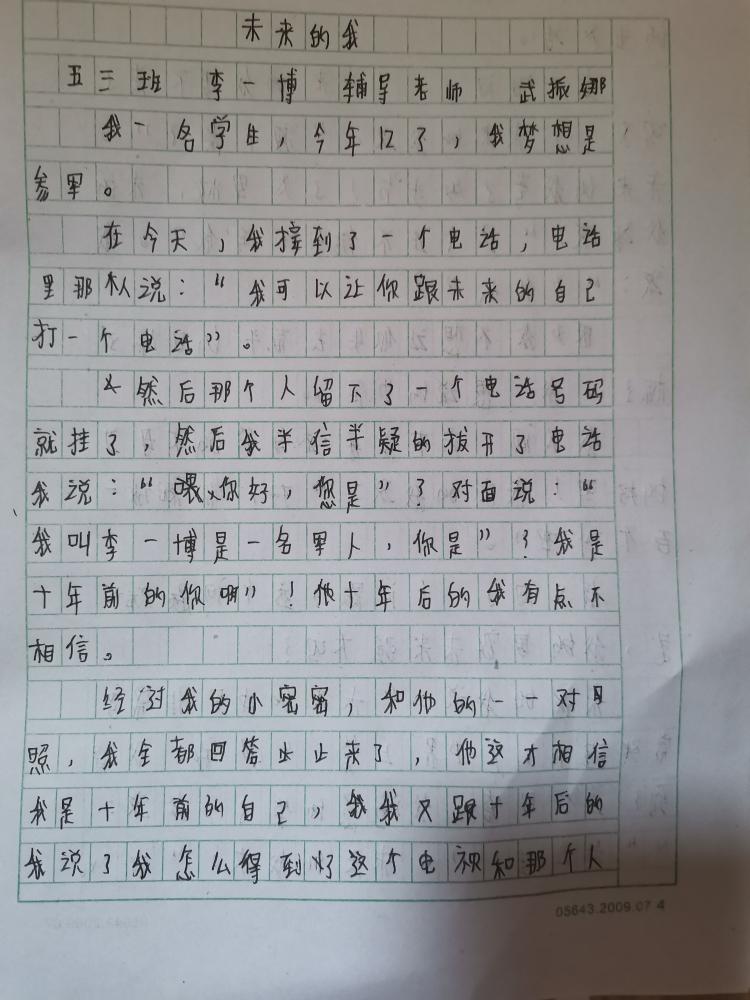 未来的我
五三班 李一博 辅导老师 武振娜
我一名学生，今年12了，我梦想是
参军。
在今天，我接到了一个电话，电话
里那个人说：“我可以让你跟未来的自己
打一个电话”。
然后那个人留下了一个电话号码
就挂了，然后我半信半疑的拔开了电话
我说：“喂，你好，您是”？对面说：“
我叫李一博是一名军人，你是”？我是
十年前的你啊”！他十年后的我有点不
相信。
经过我的小密密，和他的一一对
照，我全都回答出来了，他这才相信
我是十年前的自己，我又跟十年后的
我说了我怎么得到这个电视和那个人
05643.2009.07 4